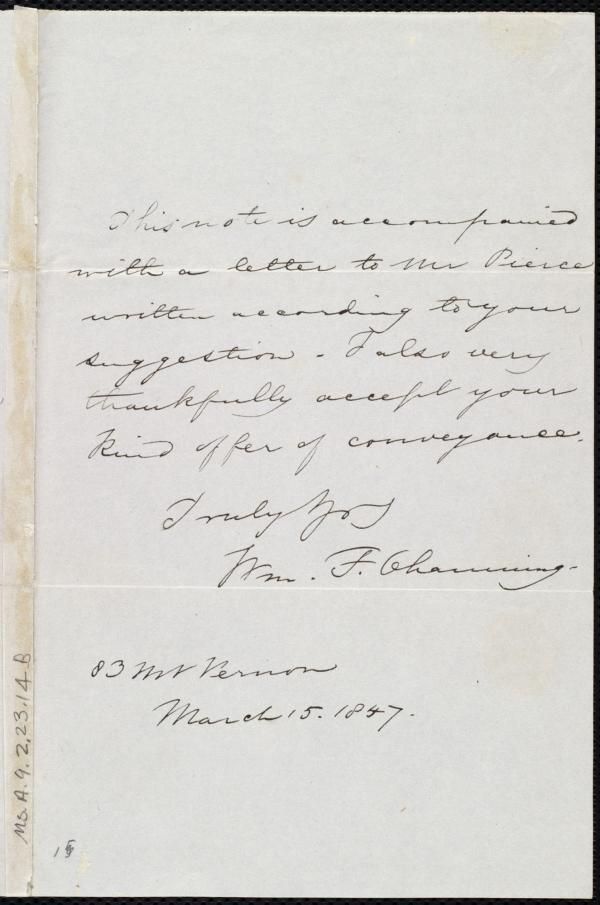 This note is accompanied
with a letter to Mr Pierce
written according to your
suggestion. I also very
thankfully accept your
kind offer of conveyance.
Truly Yrs
Wm. F. Channing.
83 Mt Vernon
March 15. 1847.
Ms. A. 9. 2. 23. 14 B